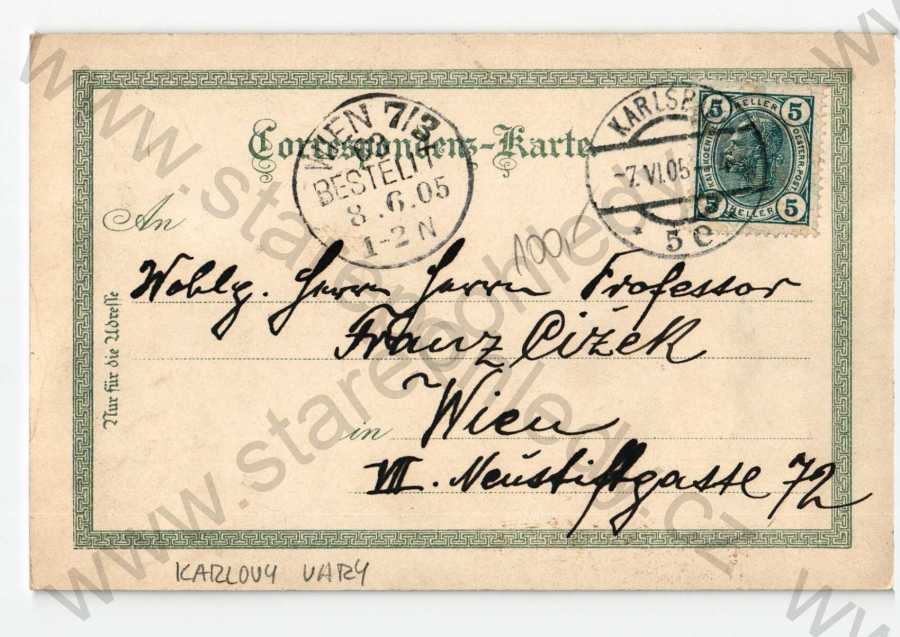 Correspondenz-Karte
WIEN 7/3
BESTELLT
8.6.05
1-2 N
KARLSB
-7.VI.05
* 5 e
5 HELLER 5
5 HELLER 5
An
100,-
Wohlg. Herrn Herrn Professor
Franz Cižek
in Wien
VII. Neustiftgasse 72
Nur für die Adresse
KARLOVY VARY
www.starepohledy.cz
www.starepohledy.cz